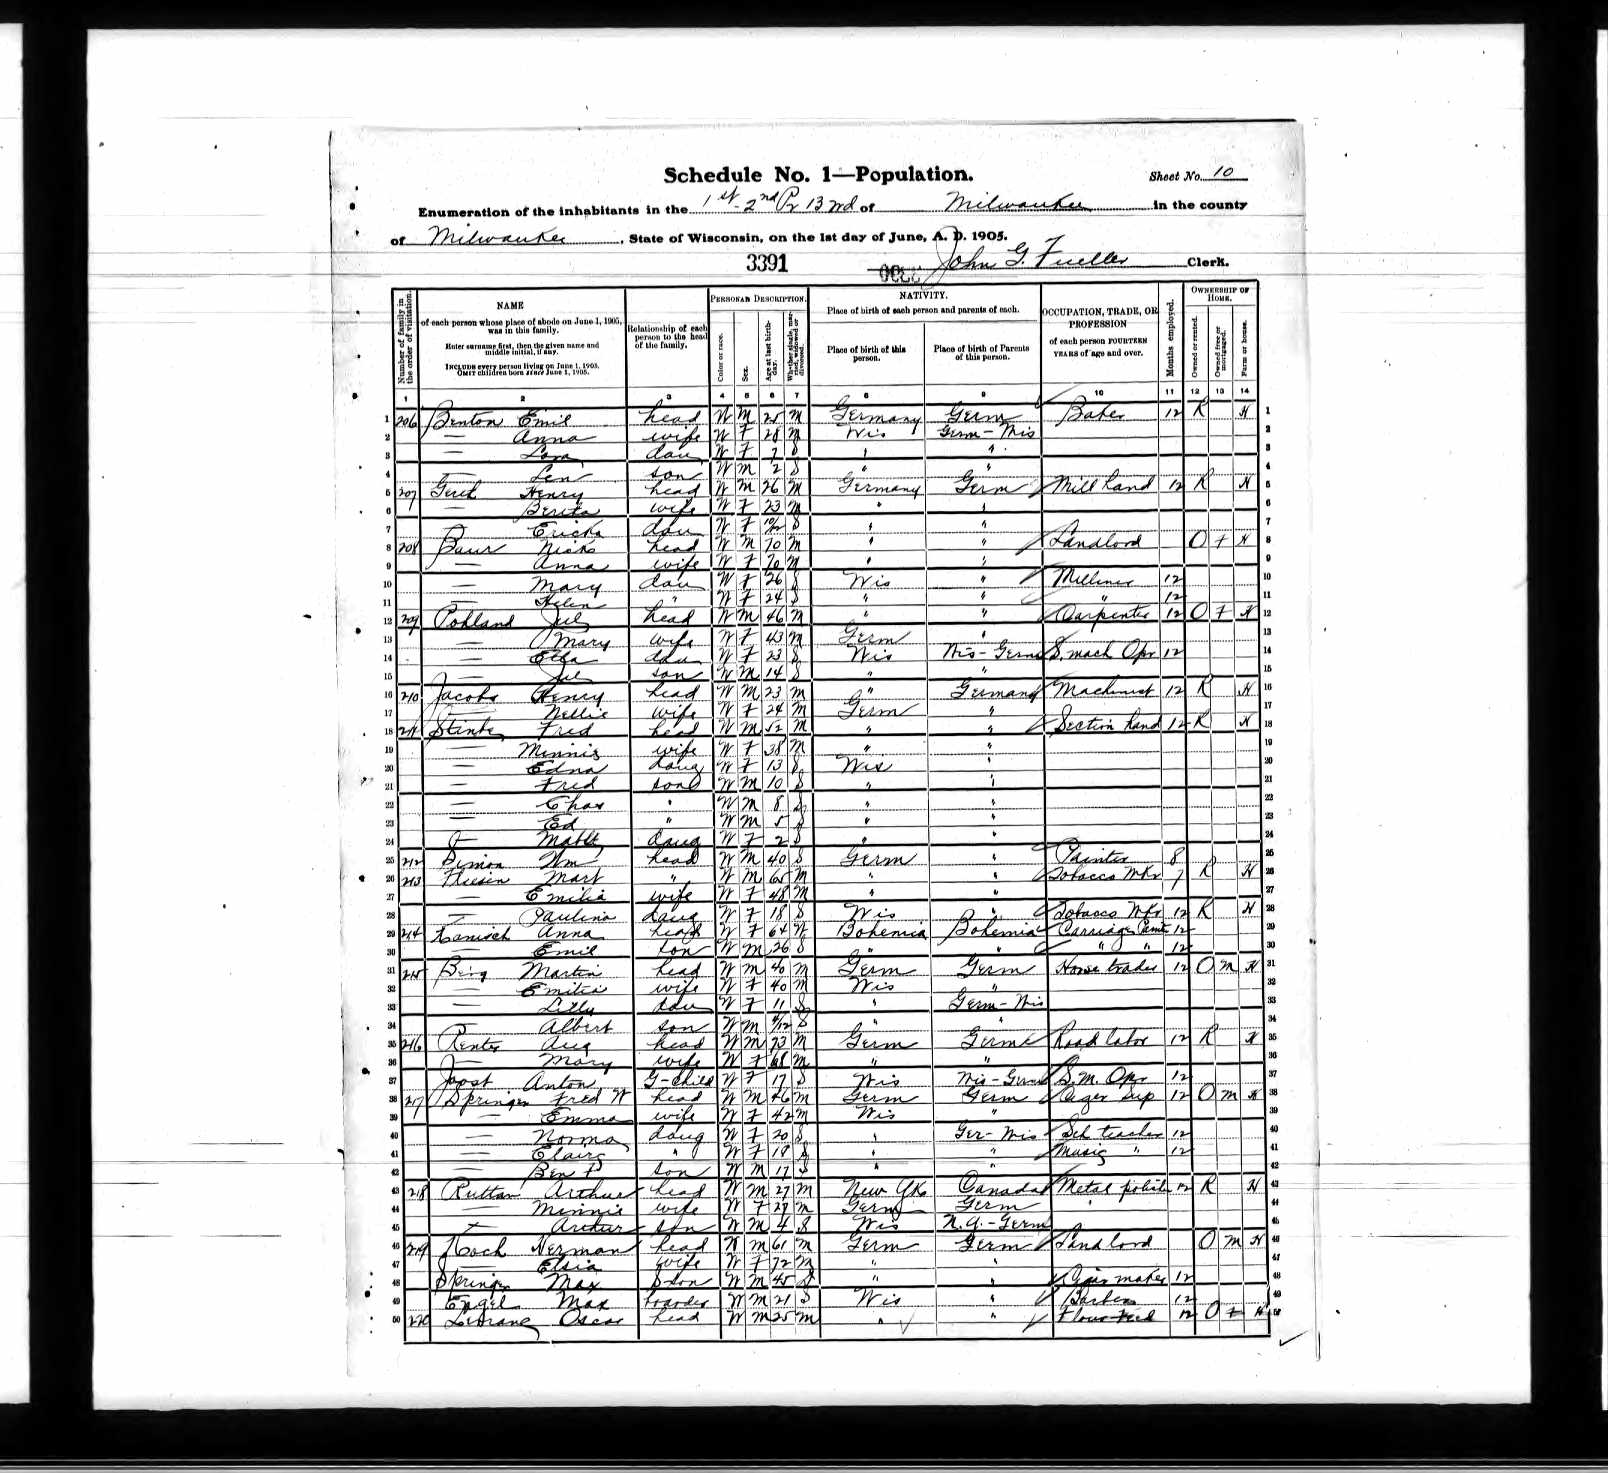 Schedule No. 1—Population.
Sheet No. 10
Enumeration of the inhabitants in the 1st - 2nd Pr 13 wd of Milwaukee in the county
of Milwaukee, State of Wisconsin, on the 1st day of June, A. D. 1905.
3391
John G. Fueller Clerk.
Number of family in the order of visitation.
NAME
of each person whose place of abode on June 1, 1905, was in this family.
Enter surname first, then the given name and middle initial, if any.
INCLUDE every person living on June 1, 1905.
OMIT children born since June 1, 1905.
Relationship of each person to the head of the family.
PERSONAL DESCRIPTION.
Color or race.
Sex.
Age at last birthday.
Whether single, married, widowed or divorced.
NATIVITY.
Place of birth of each person and parents of each.
Place of birth of this person.
Place of birth of Parents of this person.
OCCUPATION, TRADE, OR PROFESSION
of each person FOURTEEN YEARS of age and over.
Months employed.
OWNERSHIP OF HOME.
Owned or rented.
Owned free or mortgaged.
Farm or house.
1 2 3 4 5 6 7 8 9 10 11 12 13 14
1 206 Benton Emil head W M 25 M Germany Germ Baker 12 R H 1
2 — Anna wife W F 28 M Wis Germ - Wis 2
3 — Lora dau W F 7 S " " 3
4 — Len son W M 2 S " " 4
5 207 Henry head W M 26 M Germany Germ Mill hand 12 R H 5
6 — wife W F 23 M " " 6
7 — Ericka dau W F 10/12 S " " 7
8 208 Baur Nick head W M 70 M " " Landlord O F H 8
9 — Anna wife W F 70 M " " 9
10 — Mary dau W F 26 S Wis " Milliner 12 10
11 — Helen " W F 24 S " " " 12 11
12 209 Pohland Jul head W M 46 M " " Carpenter 12 O F H 12
13 — Mary wife W F 43 M Germ " 13
14 — Ella dau W F 23 S Wis Wis - Germ S. mach Opr 12 14
15 — Jul son W M 14 S " " 15
16 210 Jacobs Henry head W M 23 M " Germany Machinist 12 R H 16
17 — Nellie wife W F 24 M Germ " 17
18 211 Fred head W M 52 M " " Section hand 12 R H 18
19 — Minnie wife W F 38 M " " 19
20 — Edna daug W F 13 S Wis " 20
21 — Fred son W M 10 S " " 21
22 — Chas " W M 8 S " " 22
23 — Ed " W M 5 S " " 23
24 — Mabel daug W F 2 S " " 24
25 212 Simon Wm head W M 40 S Germ " Painter 8 25
26 213 Thiesen Mart " W M 65 M " " Tobacco Wkr 7 R H 26
27 — Emilia wife W F 48 M " " 27
28 — Paulina daug W F 18 S Wis " Tobacco Wkr 12 R H 28
29 214 Kanisch Anna head W F 64 W Bohemia Bohemia Carriage Paint 12 29
30 — Emil son W M 26 S " " " " 12 30
31 215 Berg Martin head W M 40 M Germ Germ Horse trader 12 O M H 31
32 — Emilia wife W F 40 M Wis " 32
33 — Lilly dau W F 11 S " Germ - Wis 33
34 — Albert son W M /12 S " " 34
35 216 Renter Aug head W M 73 M Germ Germ Road labor 12 R H 35
36 — Mary wife W F 68 M " " 36
37 Joost Anton G-child W F 17 S Wis Wis - Germ S. M. Opr 12 37
38 217 Springer Fred W head W M 46 M Germ Germ 12 O M H 38
39 — Emma wife W F 42 M Wis " 39
40 — Norma daug W F 20 S " Ger - Wis Sch teacher 12 40
41 — Claire " W F 19 S " " Music " 12 41
42 — Ben F son W M 17 S " " 42
43 218 Ruttan Arthur head W M 27 M New Yk Canada Metal polish 12 R H 43
44 — Minnie wife W F 27 M Germ Germ 44
45 — Arthur son W M 4 S Wis N.Y. - Germ 45
46 219 Koch Herman head W M 61 M Germ Germ Landlord O M H 46
47 — Elsia wife W F 72 M " " 47
48 Springer Max S son W M 45 S " " Cigar maker 12 48
49 Engel Max boarder W M 21 S Wis " Barber 12 49
50 220 Oscar head W M 25 M " " Flour Feed 12 O F H 50